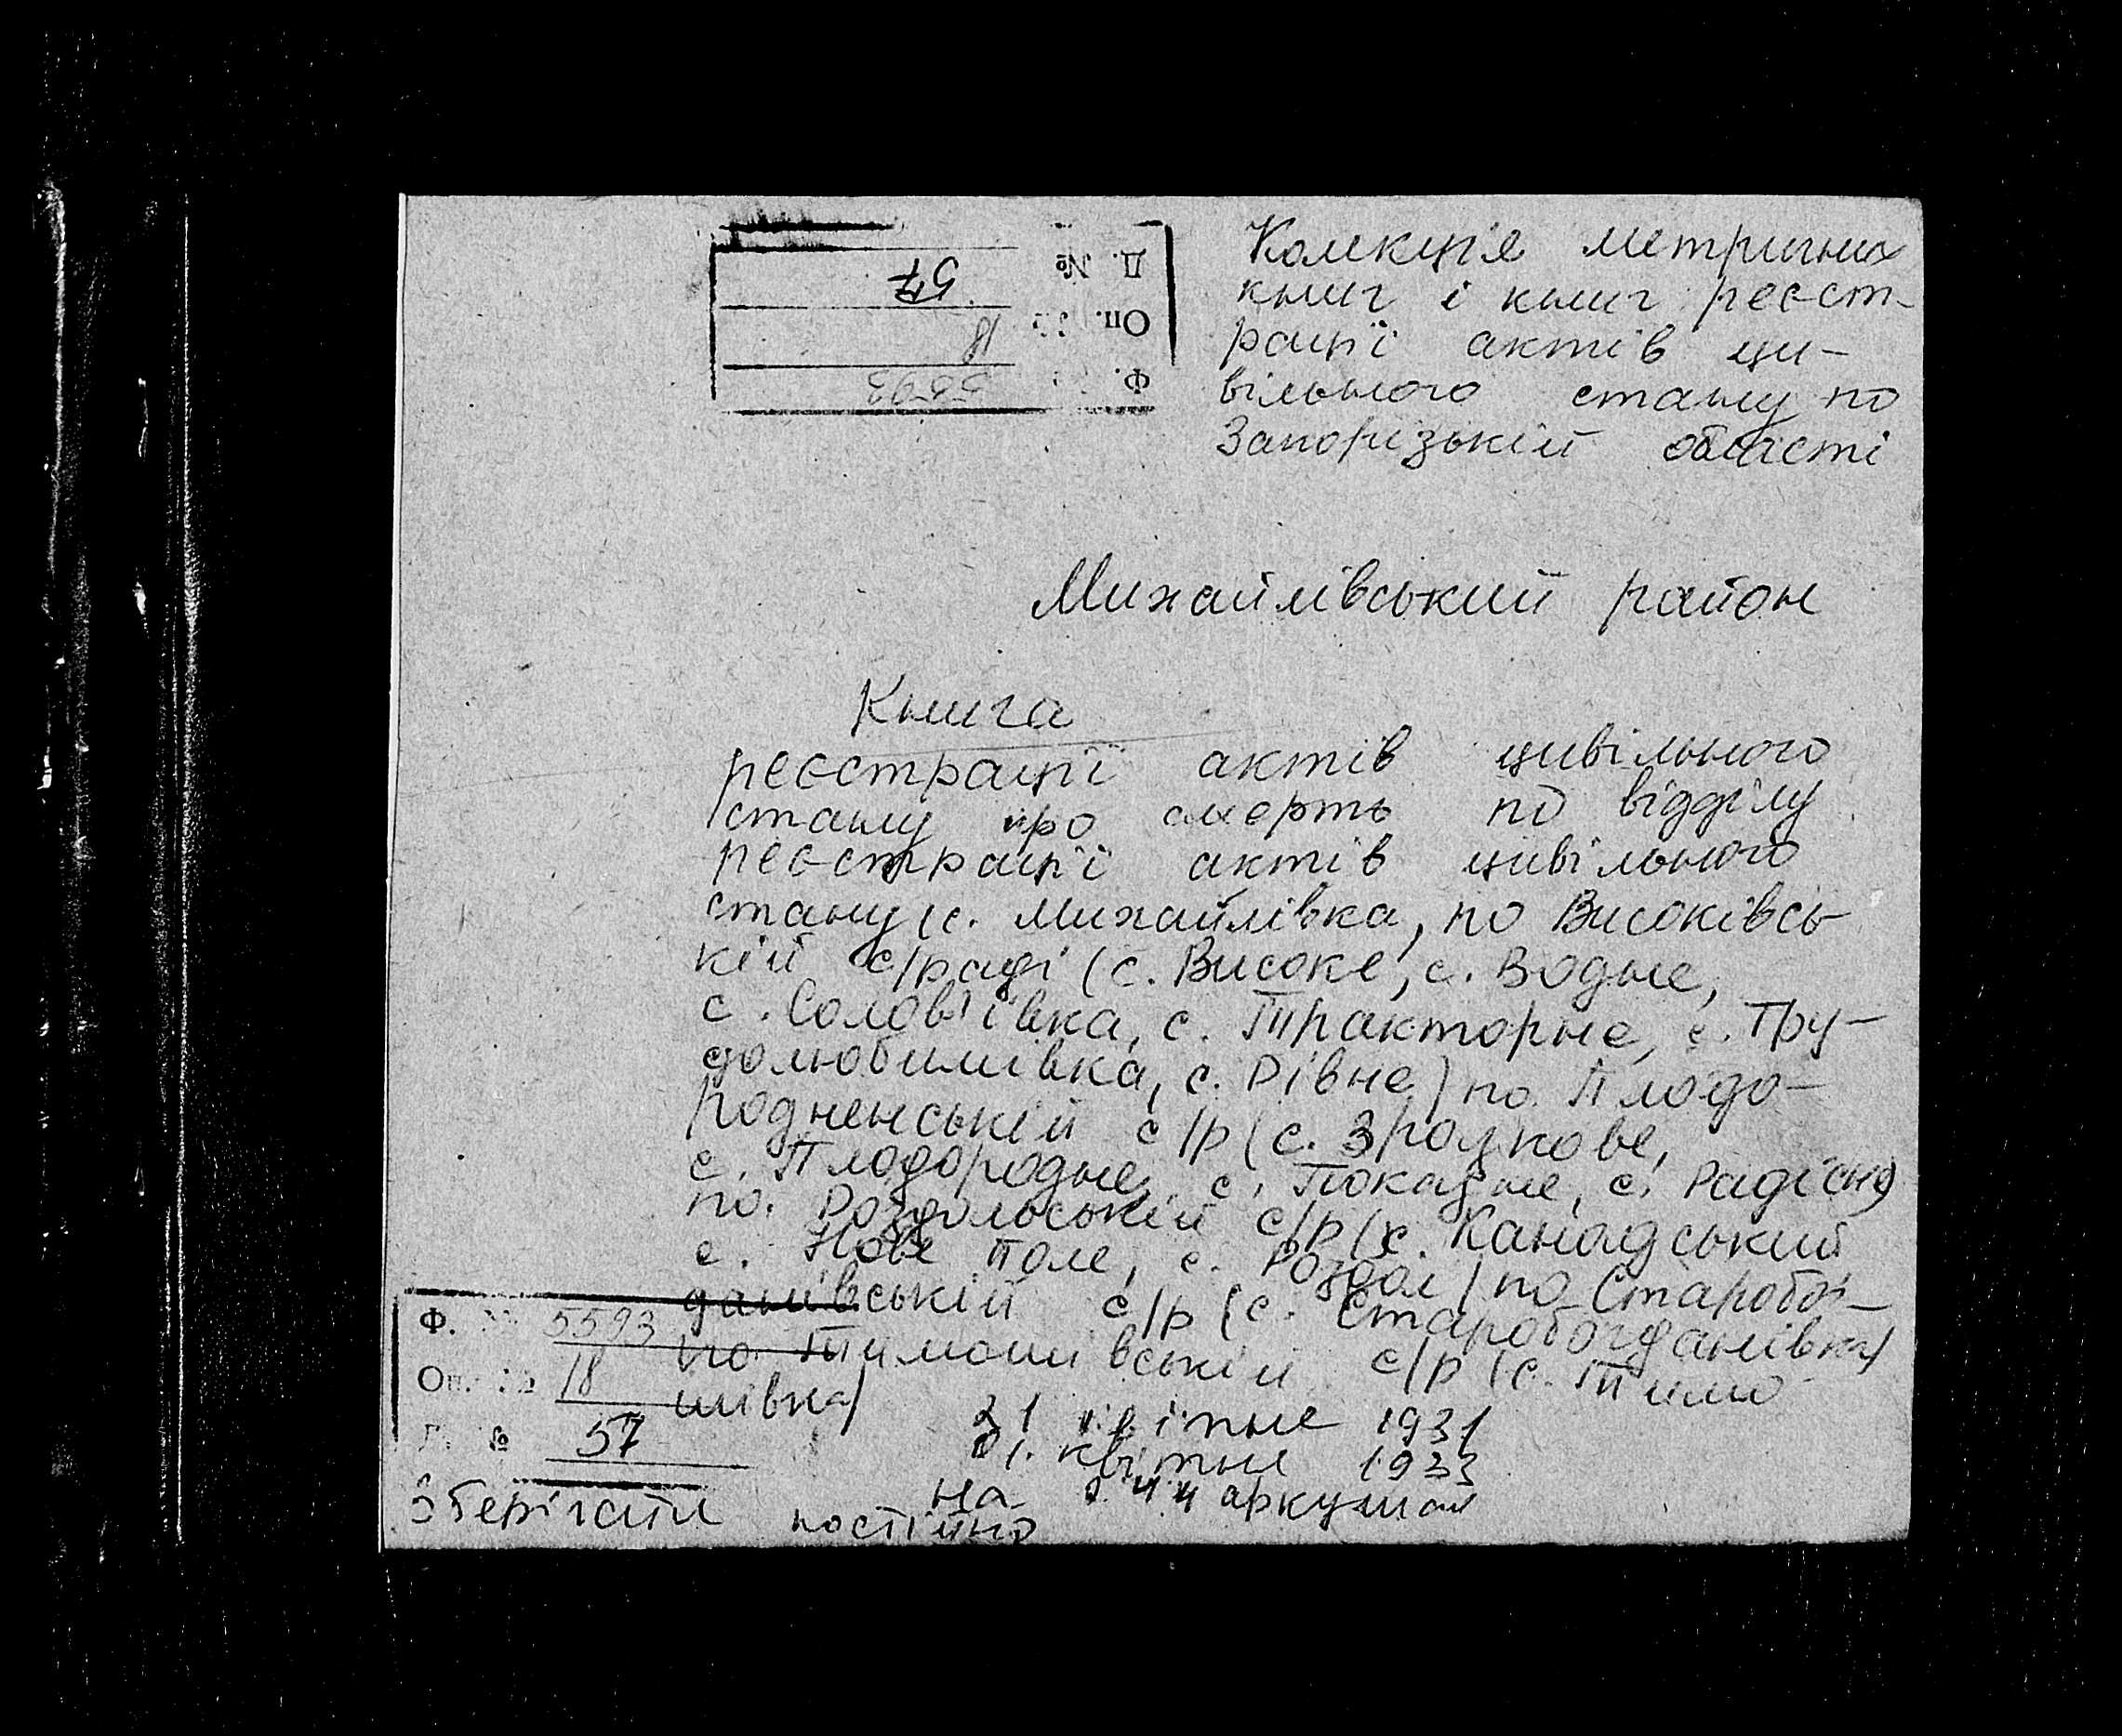 Колекція метричних
книг і книг реєст-
рації актів ци-
вільного стану по
Запорізькій області
Д. № 57
Оп. 18
Ф. 5593
Михайлівський район
Книга
реєстрації актів цивільного
стану про смерть по відділу
реєстрації актів цивільного
стану (с. Михайлівка, по Високівсь-
кій с/раді (с. Високе, с. Водне,
с. Солов'ївка, с. Тракторне, с. Тру-
долюбимівка, с. Рівне) по Плодо-
родненській с/р (с. Зразкове,
с. Плодородне, с. Показне, с. Радісне)
по Роздольській с/р (х. Канадський
с. Нове поле, с. Роздол) по Старобог-
данівській с/р (с. Старобогданівка)
по Тимошівській с/р (с. Тимо
шівка)
21 1931
01. квітня 1933
на аркушах
Ф. № 5593
Оп. № 18
№ 57
Зберігати постійно